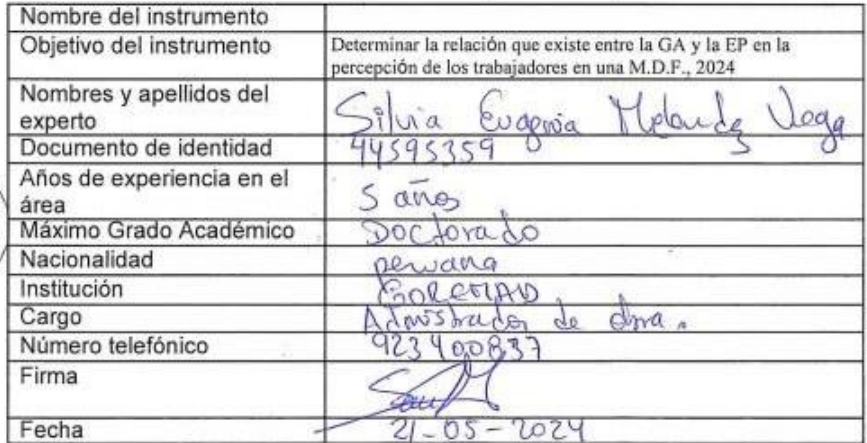 Nombre del instrumento
Objetivo del instrumento Determinar la relación que existe entre la GA y la EP en la
percepción de los trabajadores en una M.D.F., 2024
Nombres y apellidos del
experto Silvia Eugenia Vega
Documento de identidad 44595359
Años de experiencia en el
área 5 años
Máximo Grado Académico Doctorado
Nacionalidad peruana
Institución GOREMAD
Cargo de obra.
Número telefónico 923400837
Firma
Fecha 21-05-2024